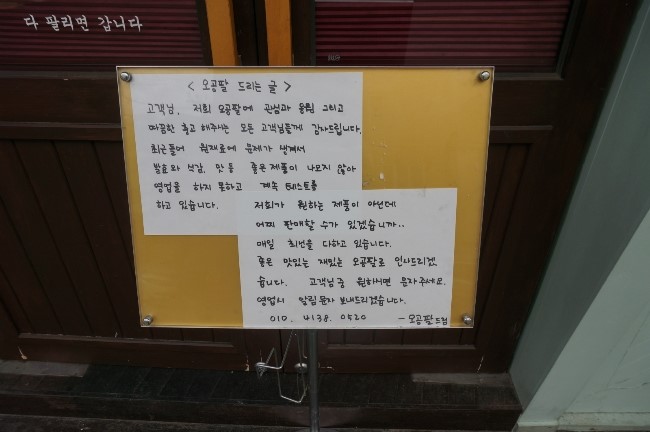 다 팔리면 갑니다
< 오공팔 드리는 글 >
고객님, 저희 오공팔에 관심과 응원 그리고
따끔한 충고 해주시는 모든 고객님들께 감사드립니다.
최근들어 원재료에 문제가 생겨서
발효와 식감, 맛 등 좋은 제품이 나오지 않아
영업을 하지 못하고 계속 테스트를
하고 있습니다.
저희가 원하는 제품이 아닌데
어찌 판매할 수가 있겠습니까..
매일 최선을 다하고 있습니다.
좋은 맛있는 재밌는 오공팔로 인사드리겠
습니다. 고객님중 원하시면 문자주세요.
영업시 알림문자 보내드리겠습니다.
010. 4138. 0520 - 오공팔드림